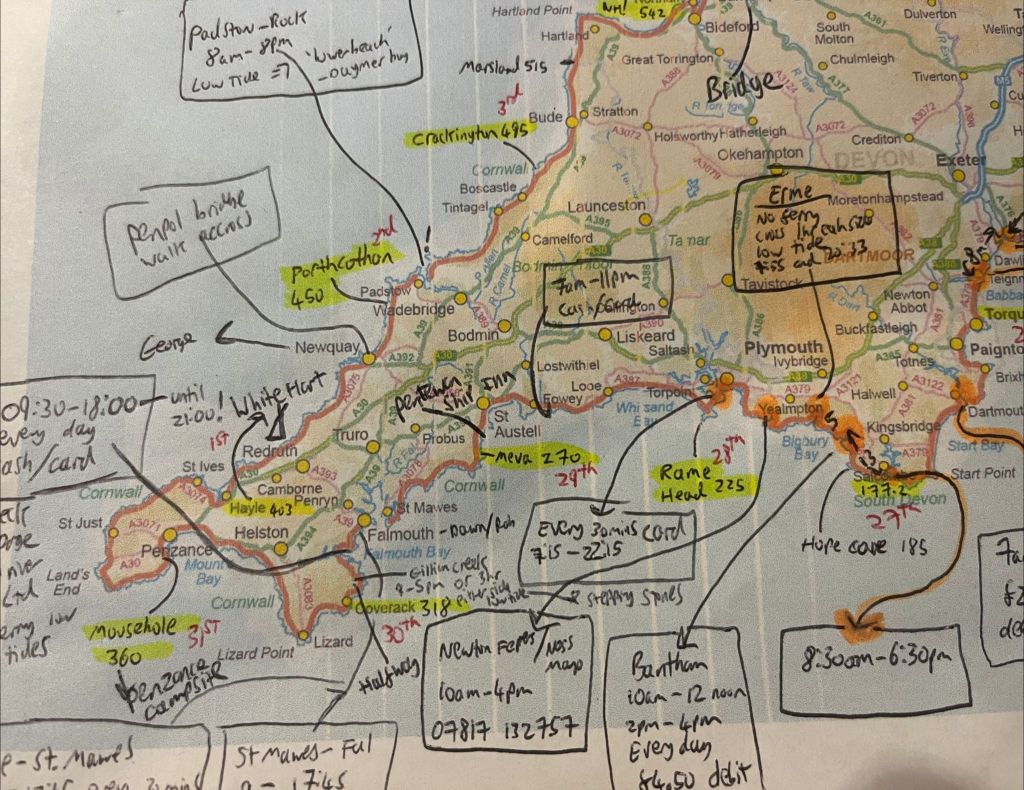 Hartland Point
NH! 542
Bideford
South
Molton
Dulverton
A361
Padstow-Rock
8am-8pm
Low Tide =7
Hartland
A39
Great Torrington
Chulmleigh
Tiverton
Marsland 515
A386
Bridge
A3124
3rd
Bude
Stratton
A3072
Holsworthy
Hatherleigh
A3072
Crediton
A3072
Crackington 485
Okehampton
DEVON
Exeter
Cornwall
Boscastle
Tintagel
A3079
Launceston
A395
Moretonhampstead
Erme
No ferry
low tide
Penpol bridge
walk accross
2nd
Porthcothan
450
Camelford
Tamar
A388
DARTMOOR
Padstow
Wadebridge
7am-11pm
cash/card
Callington
Tavistock
Newton
Abbot
A381
Bodmin
A389
A38
Liskeard
A390
A386
Buckfastleigh
George
Newquay
A392
Saltash
Plymouth
Ivybridge
A385
Totnes
Paignton
A3075
Lostwithiel
Looe
A387
Torpoint
A379
A3121
Halwell
A3122
09:30-18:00 - until
21:00!
every day
White Hart
Pentewan
Ship
Inn
St
Austell
Fowey
Whitsand
Yealmpton
Dartmouth
1st
Redruth
Truro
Probus
Meva 270
29th
Bigbury
Bay
Kingsbridge
A381
Start Bay
St Ives
A3074
Camborne
A393
A3078
Cornwall
Rame
Head 225
28th
A379
Start Point
Cornwall
Hayle 403
Penryn
St Mawes
177.2
South Devon
27th
St Just
A3071
Helston
A394
A39
Falmouth
Every 30mins card
7:15-22:15
Hope cove 185
Penzance
A30
Mount
Bay
Falmouth Bay
Gillin creek
Land's
End
Cornwall
A3083
Coverack 318
30th
& stepping stones
Mousehole
360
31st
Lizard
Lizard Point
Halfway
Newton Ferrers/Noss
Mayo
10am-4pm
07817 132757
Bantham
10am-12 noon
2pm-4pm
Every day
£4.50 debit
8:30am-6:30pm
Penzance
campsite
tides
St Mawes
St Mawes-Fal